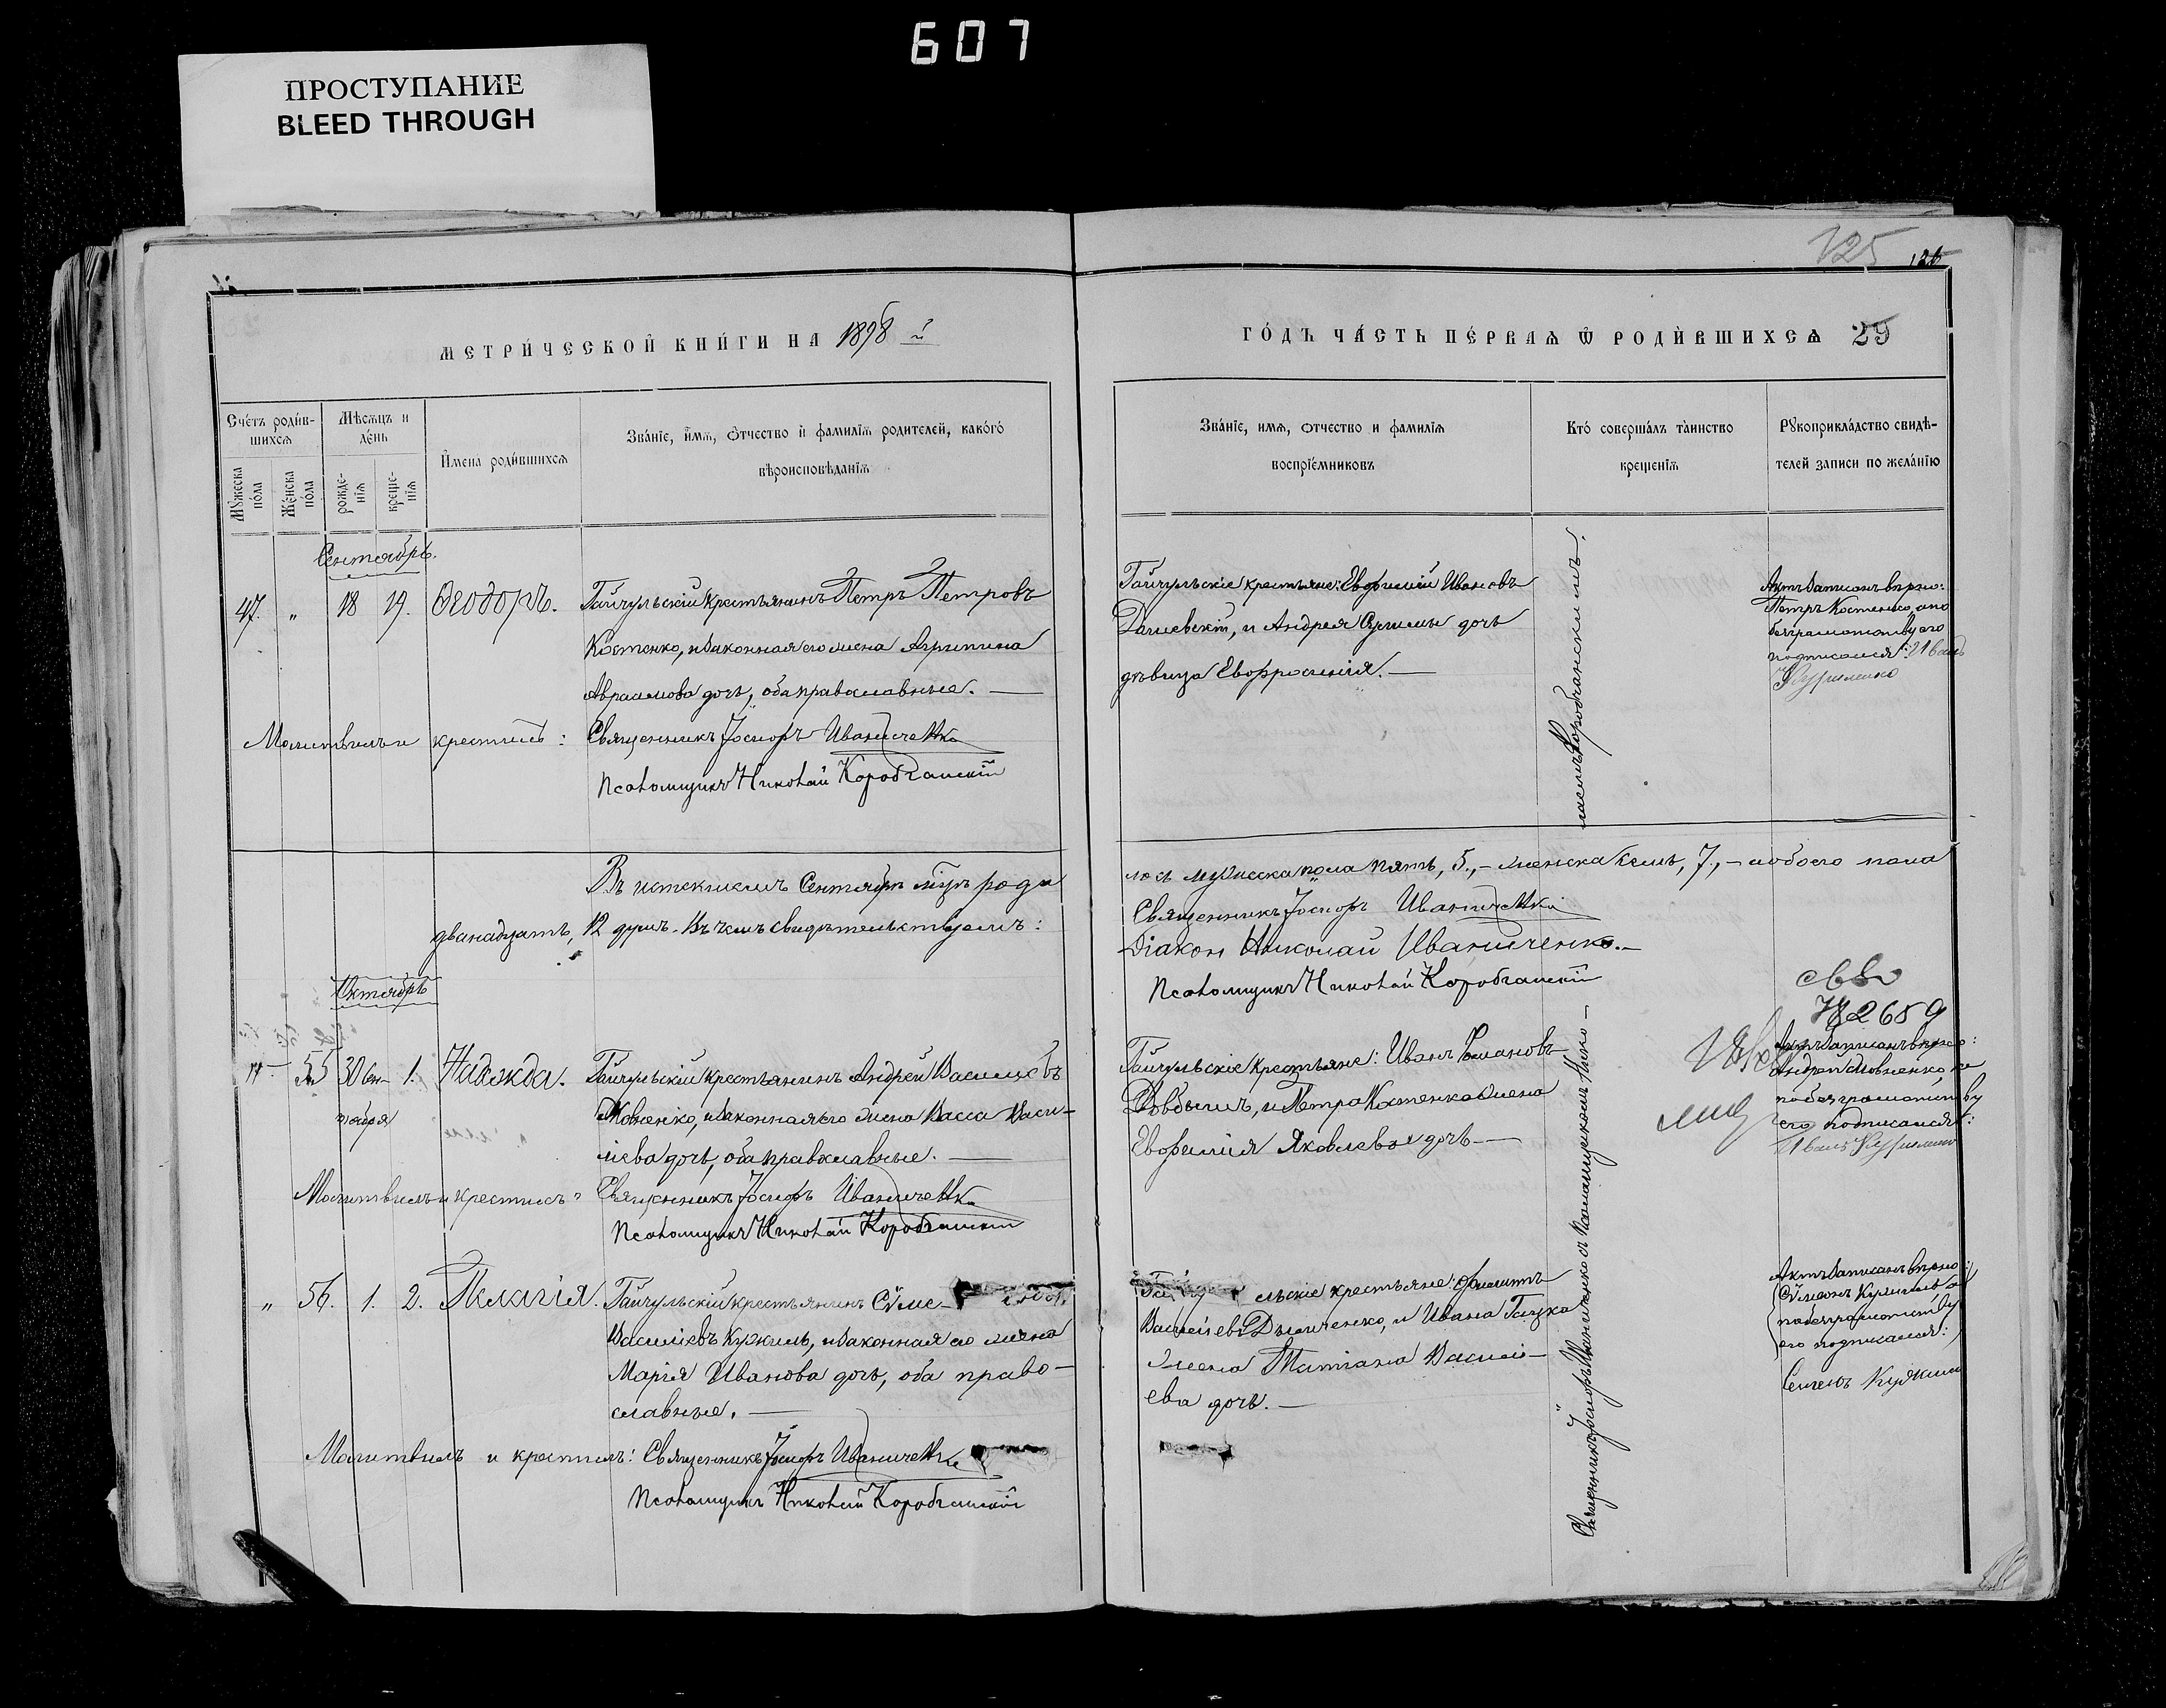 607
ПРОСТУПАНИЕ
BLEED THROUGH
125
МЕТРИ́ЧЕСКОЙ КНИ́ГИ НА 1898 й
ГО́ДЪ ЧА́СТЬ ПЕ́РВАѦ Ѿ РОДИ́ВШИХСѦ 29
Сче́тъ роди́в-
шихсѧ
Мѣсѧцъ и
де́нь
Мꙋ́жеска
по́ла
Же́нска
по́ла
рожде-
нїѧ
креще-
нїѧ
Имена̀ роди́вшихсѧ
Зва́нїе, имѧ, ѻтчество и фамилїѧ родителей, како́гѡ
вѣроисповѣданїѧ
Зва́нїе, имѧ, ѻтчество и фамилїѧ
воспрїе́мниковъ
Кто̀ соверша́лъ та́инство
крещенїѧ
Рꙋкоприкла́дство свидѣ-
телей записи по жела́нїю
Сентябрь.
47. " 18 19. Ѳеодоръ.
Гайчульскій крестьянинъ Петръ Петровъ
Костенко, и законная его жена Агрипина
Авраамова дочь, оба православные. —
Молитвилъ и крестилъ: Священникъ Іосифъ Иваниченко
Псаломщикъ Николай Коробчанскій
Гайчульскіе крестьяне: Евфимій Ивановъ
Дашевскій, и Андрея дочь
дѣвица Евфросинія. —
Актъ записанъ вѣрно:
Петръ Костенко, а по
безграмотству его
подписался: Иванъ
Куриленко
Въ истекшемъ Сентябрѣ м-цѣ роди
лось мужеска пола пять, 5, — женска семь, 7, — обоего пола
двѣнадцать, 12 душъ. Въ чемъ свидѣтельствуемъ:
Священникъ Іосифъ Иваниченко
Діаконъ Николай Иваниченко. —
Псаломщикъ Николай Коробчанскій
Октябрь
55 30 Сен- 1. Надежда.
тября
Гайчульскій крестьянинъ Андрей Васильевъ
Жовненко, и законная его жена Васса Васи-
лiева дочь, оба православные. —
Молитвилъ и крестилъ: Священникъ Іосифъ Иваниченко
Псаломщикъ Николай Коробчанскій
Гайчульскіе крестьяне: Иванъ Романовъ
Довбышъ, и Петра Костенка жена
Евфимія Яковлева дочь —
№ 2659
Актъ записанъ вѣрно:
Андрей Жовненко, а
по безграмотству
его подписался:
Иванъ Куриленко
" 56. 1. 2. Пелагія.
Гайчульскій крестьянинъ Сѵме-
Василіевъ Кужиль, и законная его жена
Марія Иванова дочь, оба право-
славные. —
Молитвилъ и крестилъ: Священникъ Іосифъ Иваниченко
Псаломщикъ Николай Коробчанскій
Гайчульскіе крестьяне: Филиппъ
Васильевъ и Ивана
жена Татіана Василі-
ева дочь. —
Актъ записанъ вѣрно:
Сѵмеонъ
по безграмотству
его подписался:
Семенъ
Священникъ Іосифъ Иваниченко съ Псаломщикомъ Нико-
лаемъ Коробчанскимъ.